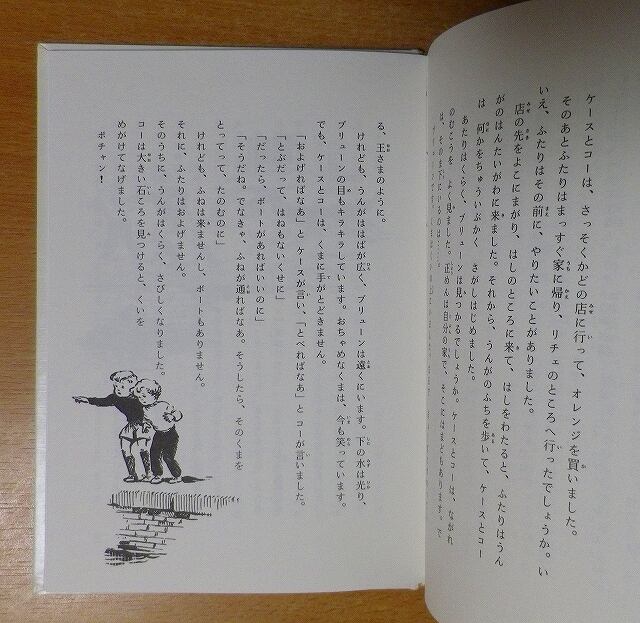 ケースとコーは、さっそくかどの店に行って、オレンジを買いました。
そのあとふたりはまっすぐ家に帰り、リチェのところへ行ったでしょうか。い
いえ、ふたりはその前に、やりたいことがありました。
店の先をよこにまがり、はしのところに来て、はしをわたると、ふたりはうん
がのはんたいがわに来ました。それから、うんがのふちを歩いて、ケースとコー
は　何かをちゅういぶかく　さがしはじめました。
あたりはくらく、ブリューンは見つかるでしょうか。ケースとコーは、ながれ
のむこうを　よく見ました。正めんは自分の家で、そこにはまどもあります。で
は、そのま下にいるのは
る、王さまのように。
けれども、うんがははばが広く、ブリューンは遠くにいます。下の水は光り、
ブリューンの目もキラキラしています。おちゃめなくまは、今も笑っています。
でも、ケースとコーは、くまに手がとどきません。
「およげればなあ」と　ケースが言い、「とべればなあ」と　コーが言いました。
「とぶだって、はねもないくせに」
「だったら、ボートがあればいいのに」
「そうだね。でなきゃ、ふねが通ればなあ。そうしたら、そのくまを
とってって、たのむのに」
けれども、ふねは来ませんし、ボートもありません。
それに、ふたりはおよげません。
そのうちに、うんがはくらく、さびしくなりました。
コーは大きい石ころを見つけると、くいを
めがけてなげました。
ボチャン！